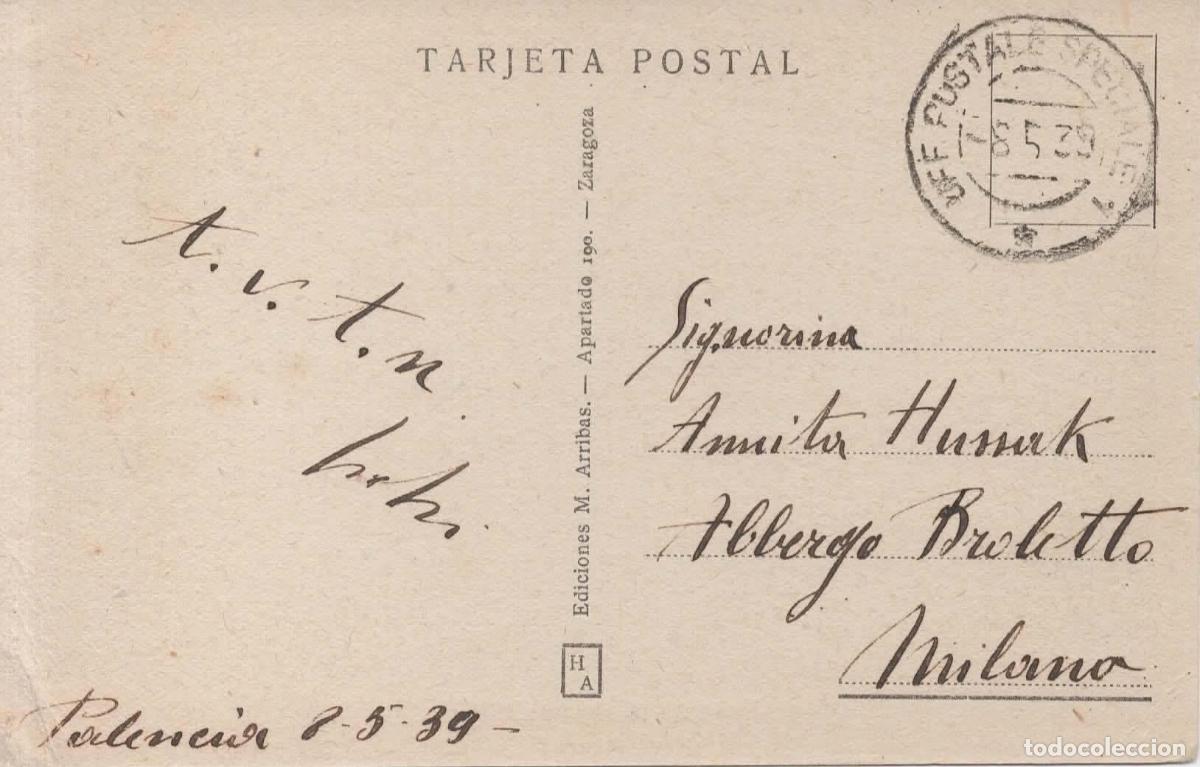 TARJETA POSTAL
UFF. POSTALE SPECIALE 1
8 5 39
Ediciones M. Arribas. — Apartado 190. — Zaragoza
H
A
t. v. t. n.
Signorina
Annita Hussak
Albergo Broletto
Milano
Palencia 8-5-39-
todocoleccion